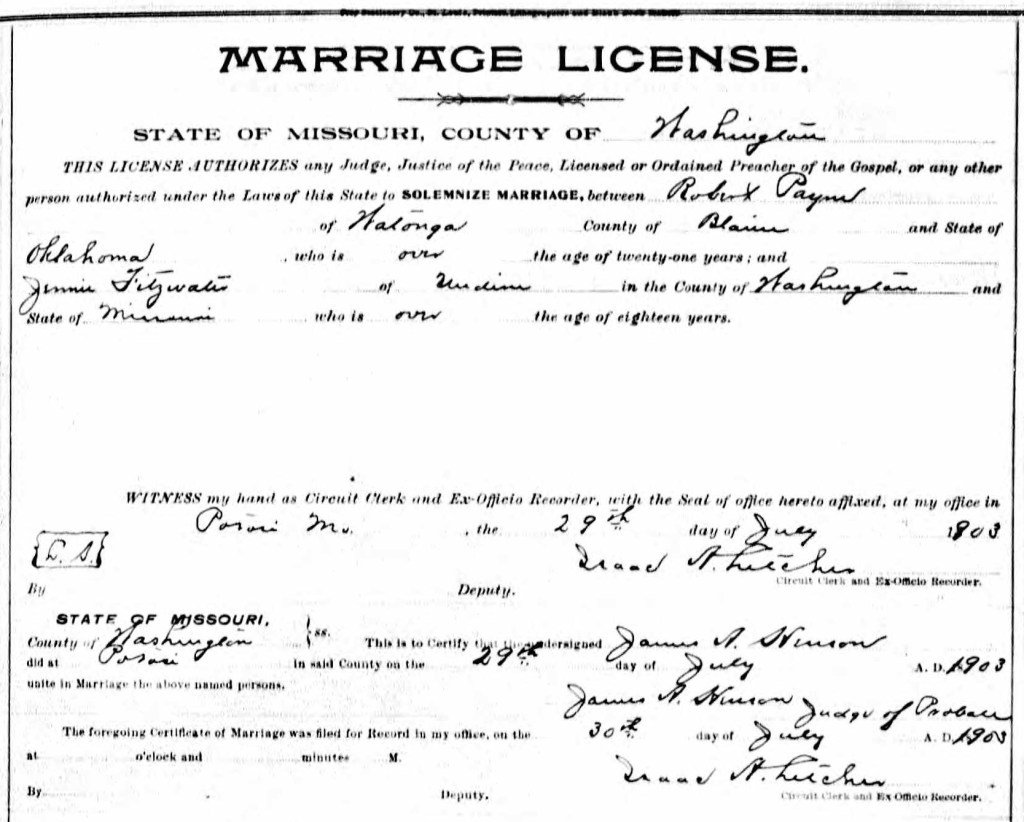 MARRIAGE LICENSE.
STATE OF MISSOURI, COUNTY OF Washington
THIS LICENSE AUTHORIZES any Judge, Justice of the Peace, Licensed or Ordained Preacher of the Gospel, or any other
person authorized under the Laws of this State to SOLEMNIZE MARRIAGE, between Robert Payne
of Watonga County of Blaine and State of
Oklahoma, who is over the age of twenty-one years; and
Jennie Fitzwater of Undine in the County of Washington and
State of Missouri who is over the age of eighteen years.
WITNESS my hand as Circuit Clerk and Ex-Officio Recorder, with the Seal of office hereto affixed, at my office in
Potosi Mo., the 29th day of July 1903
L. S.
Isaac A. Letcher
Circuit Clerk and Ex-Officio Recorder.
By Deputy.
STATE OF MISSOURI,
County of Washington } ss. This is to Certify that the undersigned James A. Hinson
did at Potosi in said County on the 29th day of July A. D. 1903
unite in Marriage the above named persons.
James A. Hinson Judge of Probate
The foregoing Certificate of Marriage was filed for Record in my office, on the 30th day of July A. D. 1903
at o'clock and minutes M.
Isaac A. Letcher
By Deputy. Circuit Clerk and Ex-Officio Recorder.